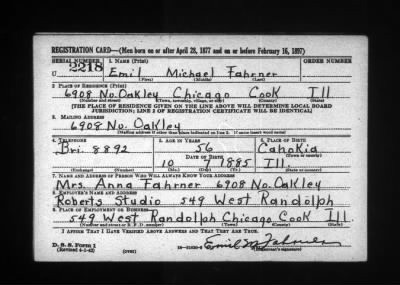 REGISTRATION CARD—(Men born on or after April 28, 1877 and on or before February 16, 1897)
SERIAL NUMBER 1. NAME (Print) ORDER NUMBER
U 2218 Emil Michael Fahrner
(First) (Middle) (Last)
2. PLACE OF RESIDENCE (Print)
6908 No. Oakley Chicago Cook Ill
(Number and street) (Town, township, village, or city) (County) (State)
[THE PLACE OF RESIDENCE GIVEN ON THE LINE ABOVE WILL DETERMINE LOCAL BOARD
JURISDICTION; LINE 2 OF REGISTRATION CERTIFICATE WILL BE IDENTICAL]
3. MAILING ADDRESS
6908 No. Oakley
[Mailing address if other than place indicated on line 2. If same insert word same]
4. TELEPHONE 5. AGE IN YEARS 6. PLACE OF BIRTH
Bri. 8892 56 Cahokia
DATE OF BIRTH (Town or county)
10 7 1885 Ill.
(Exchange) (Number) (Mo.) (Day) (Yr.) (State or country)
7. NAME AND ADDRESS OF PERSON WHO WILL ALWAYS KNOW YOUR ADDRESS
Mrs. Anna Fahrner 6908 No. Oakley
8. EMPLOYER'S NAME AND ADDRESS
Roberts Studio 549 West Randolph
9. PLACE OF EMPLOYMENT OR BUSINESS
549 West Randolph Chicago Cook Ill.
(Number and street or R. F. D. number) (Town) (County) (State)
I AFFIRM THAT I HAVE VERIFIED ABOVE ANSWERS AND THAT THEY ARE TRUE.
D. S. S. Form 1
(Revised 4-1-42) (over) Emil M. Fahrner
(Registrant's signature)